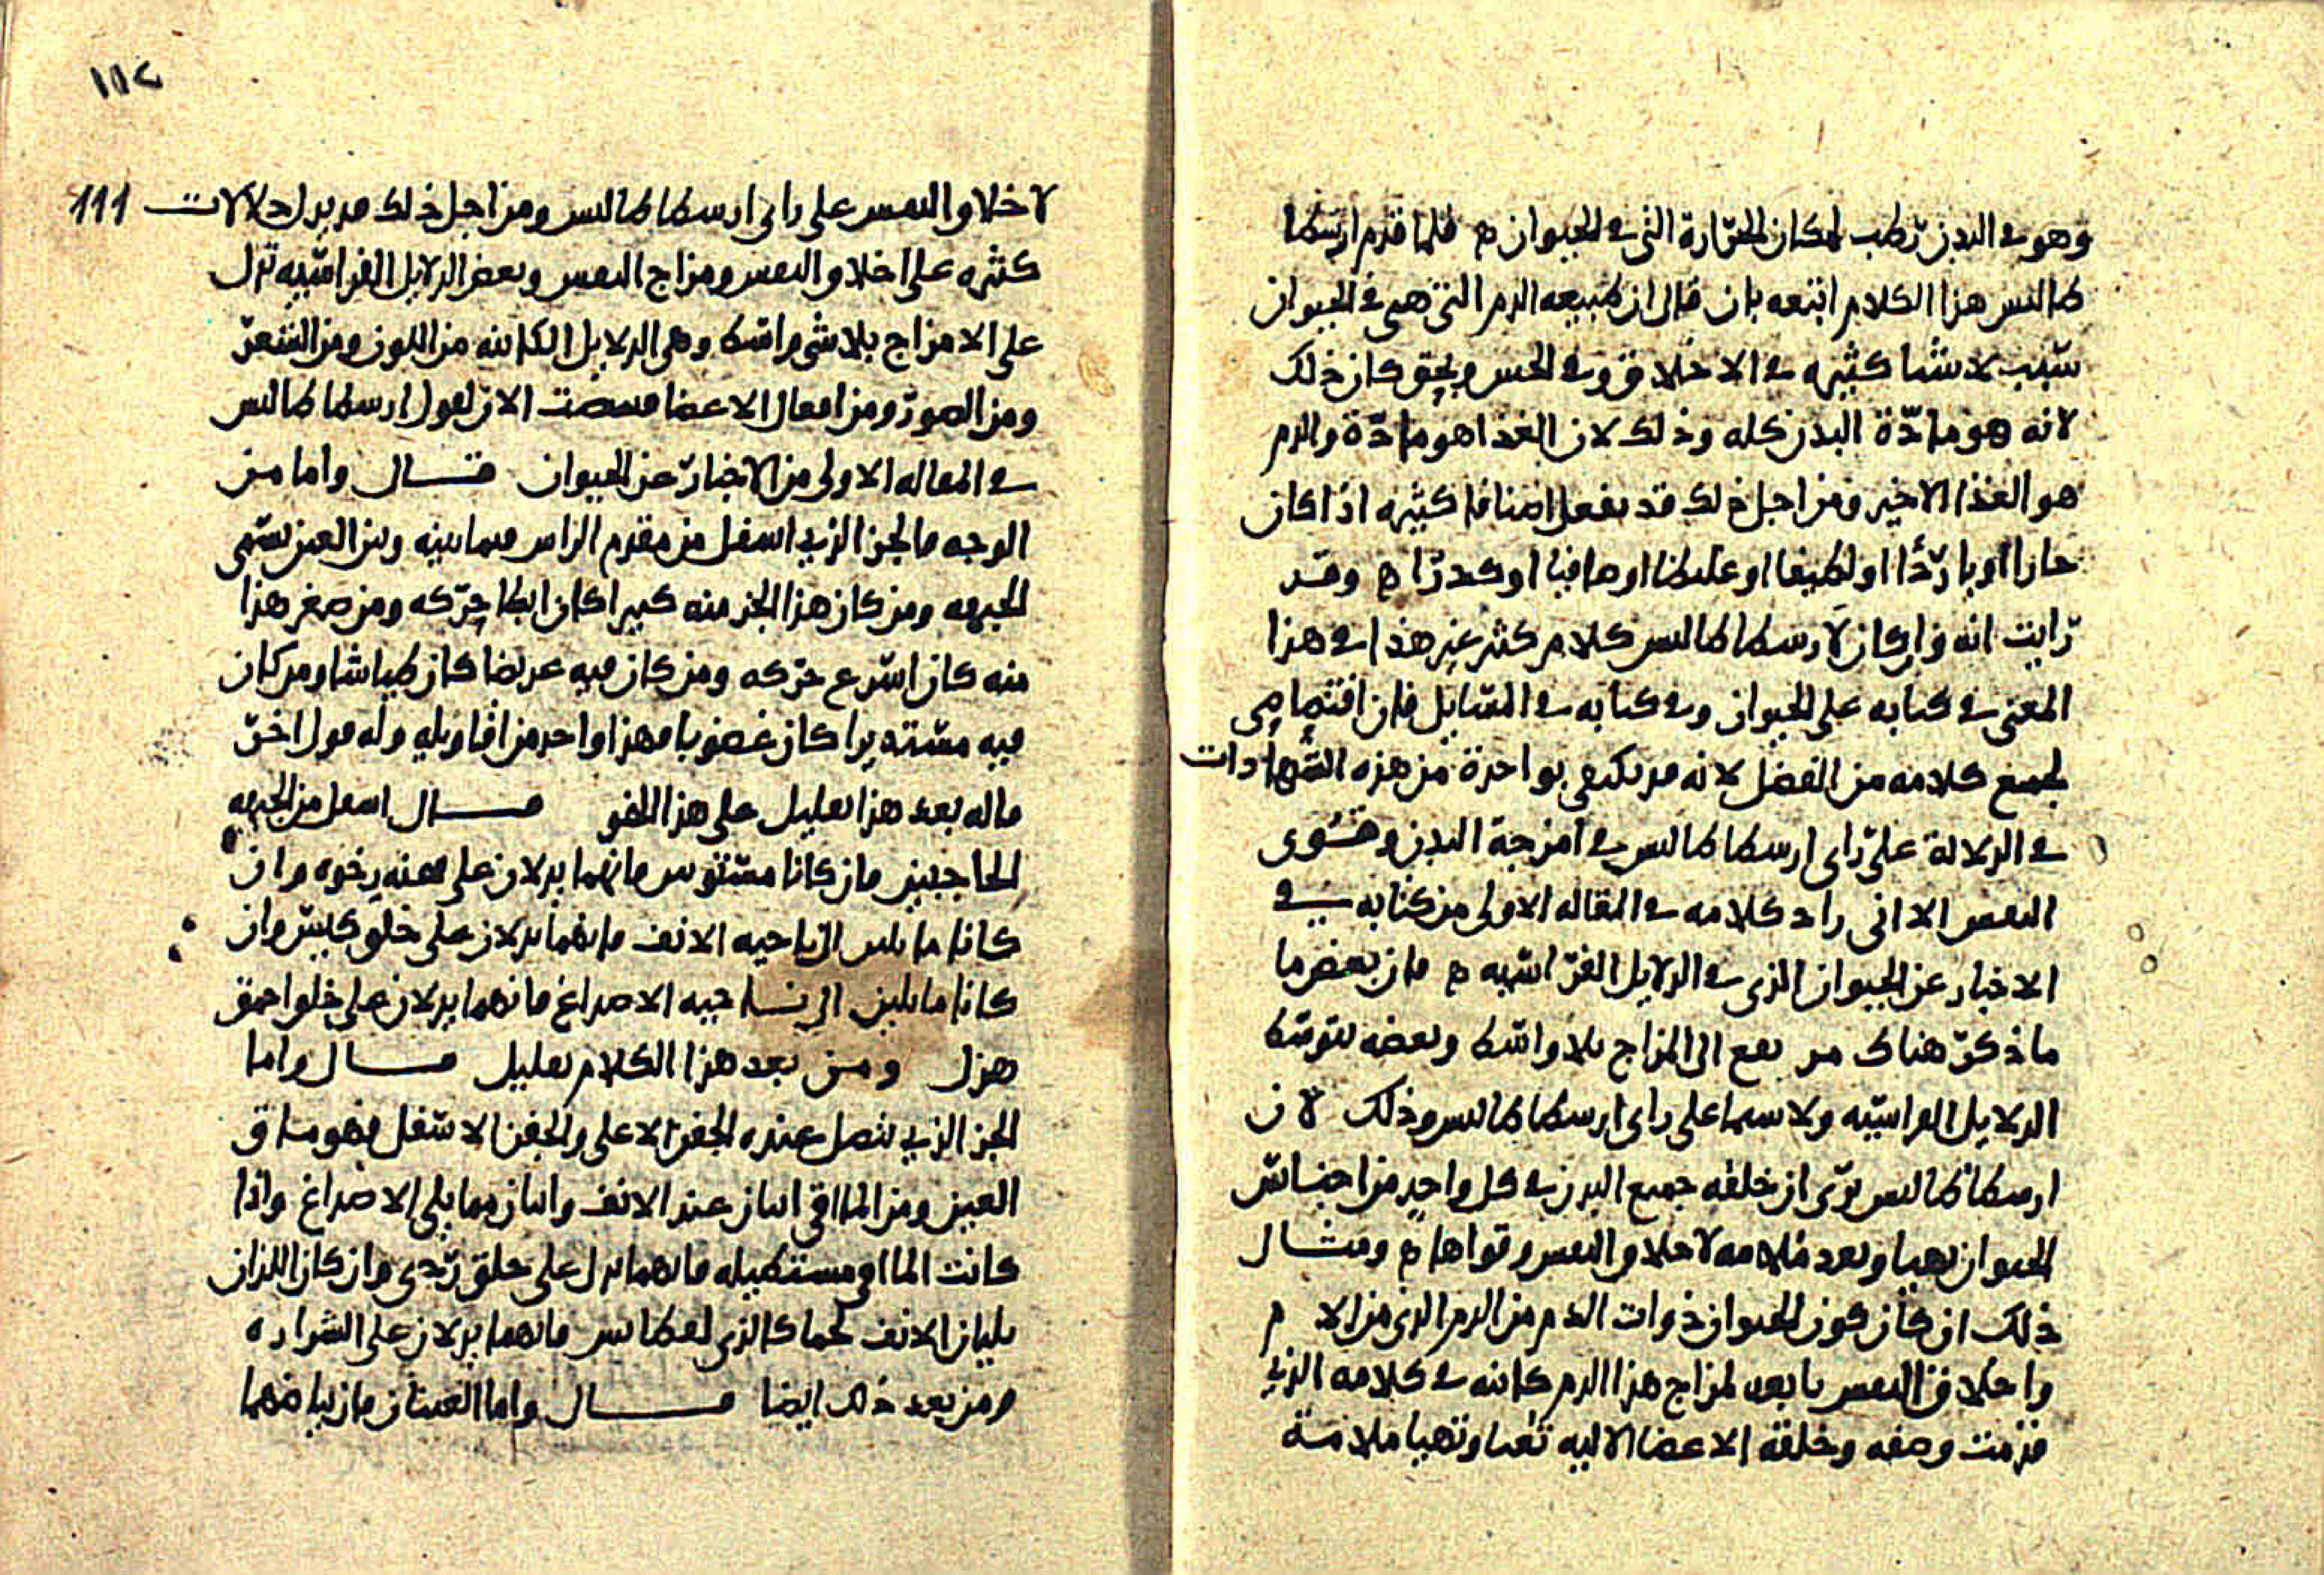 وهو في البدن رطب لمكان الحرارة التي في الحيوان ۾ فلما قدم ارسطا
طالس هذا الكلام اتبعه بان قال ان طبيعه الدم التي هي في الحيوان
سبب لاشيا كثيره في الاخلاق وفي الحس وبحق كان ذلك
لانه هو مادة البدن كله وذلك لان الغذا هو مادة والدم
هو الغذا الاخير ومن اجل ذلك قد يفعل اصنافا كثيره اذا كان
حارا او باردا او لطيفا او غليظا او صافيا او كدرا ۾ وقد
رايت انه وان كان لارسطاطالس كلام كثير غير هذا في هذا
المعنى في كتابه على الحيوان وفي كتابه في المسايل فان اقتصاصي
لجميع كلامه من الفضل لانه قد يكتفى بواحدة من هذه الشهادات
في الدلالة على راى ارسطاطالس في امزجة البدن وقوى
النفس الا انى راد كلامه في المقاله الاولى من كتابه في
الاخبار عن الحيوان الذى في الدلايل الفراسيه ۾ فان بعض ما
ما ذكر هناك قد يقع الى المزاج بلا واسط وبعضه بتوسط
الدلايل الفراسيه ولا سيما على راى ارسطاطالس وذلك لان
ارسطاطالس يرى ان خلقه جميع البدن في كل واحد من اجناس
الحيوان تهيا وتعد ملامه لاخلاق النفس وقواها ۾ ومثال
ذلك ان كان كون الحيوان ذوات الدم من الدم الذى من الام
واخلاق النفس تابعه لمزاج هذا الدم كانه في كلامه الذي
قدمت وصفه وخلقة الاعضا الاليه تعبا وتهيا ملامة
١١٢
لاخلاق النفس على راى ارسطاطالس ومن اجل ذلك قد يدل دلالات 111
كثيره على اخلاق النفس ومزاج النفس وبعض الدلايل الفراسيه تدل
على الامزاج بلا شى واسط وهى الدلايل الكاينه من اللون ومن الشعر
ومن الصور ومن افعال الاعضا الان لقول ارسطاطالس
في المقاله الاولى من الاخبار عن الحيوان قال واما من
الوجه فالجز الذي اسفل من مقدم الراس فيما بينه وبين العين يسمى
الجبهه ومن كان هذا الجز منه كبيرا كان ابطا حركه ومن صغر هذا
منه كان اسرع حركه ومن كان فيه عريضا كان طياشا ومن كان
فيه مستديرا كان غضوبا فهذا واحد من اقاويله وله قول اخر
قاله بعد هذا بقليل على هذا النحو قال اسفل من الجبهه
الحاجبين فان كانا مستويين فانهما يدلان على مهنه رخوه وان
كانا مايلين الى ناحيه الانف فانهما يدلان على خلق كيس وان
كانا مايلين الى ناحيه الاصداغ فانهما يدلان على خلق احمق
هزل ومن بعد هذا الكلام بقليل قال واما
الجز الذي يتصل عنده الجفن الاعلى والجفن الاسفل فهو ماق
العين ومن الماقي اثنان عند الانف واثنان مما يلى الاصداغ واذا
كانت الماقي مستطيله فانهما تدل على خلق ردى وان كان اللذان
يليان الانف لحما كالذى فانهما يدلان على الشراره
ومن بعد ذلك ايضا قال واما العينان فان بياضهما